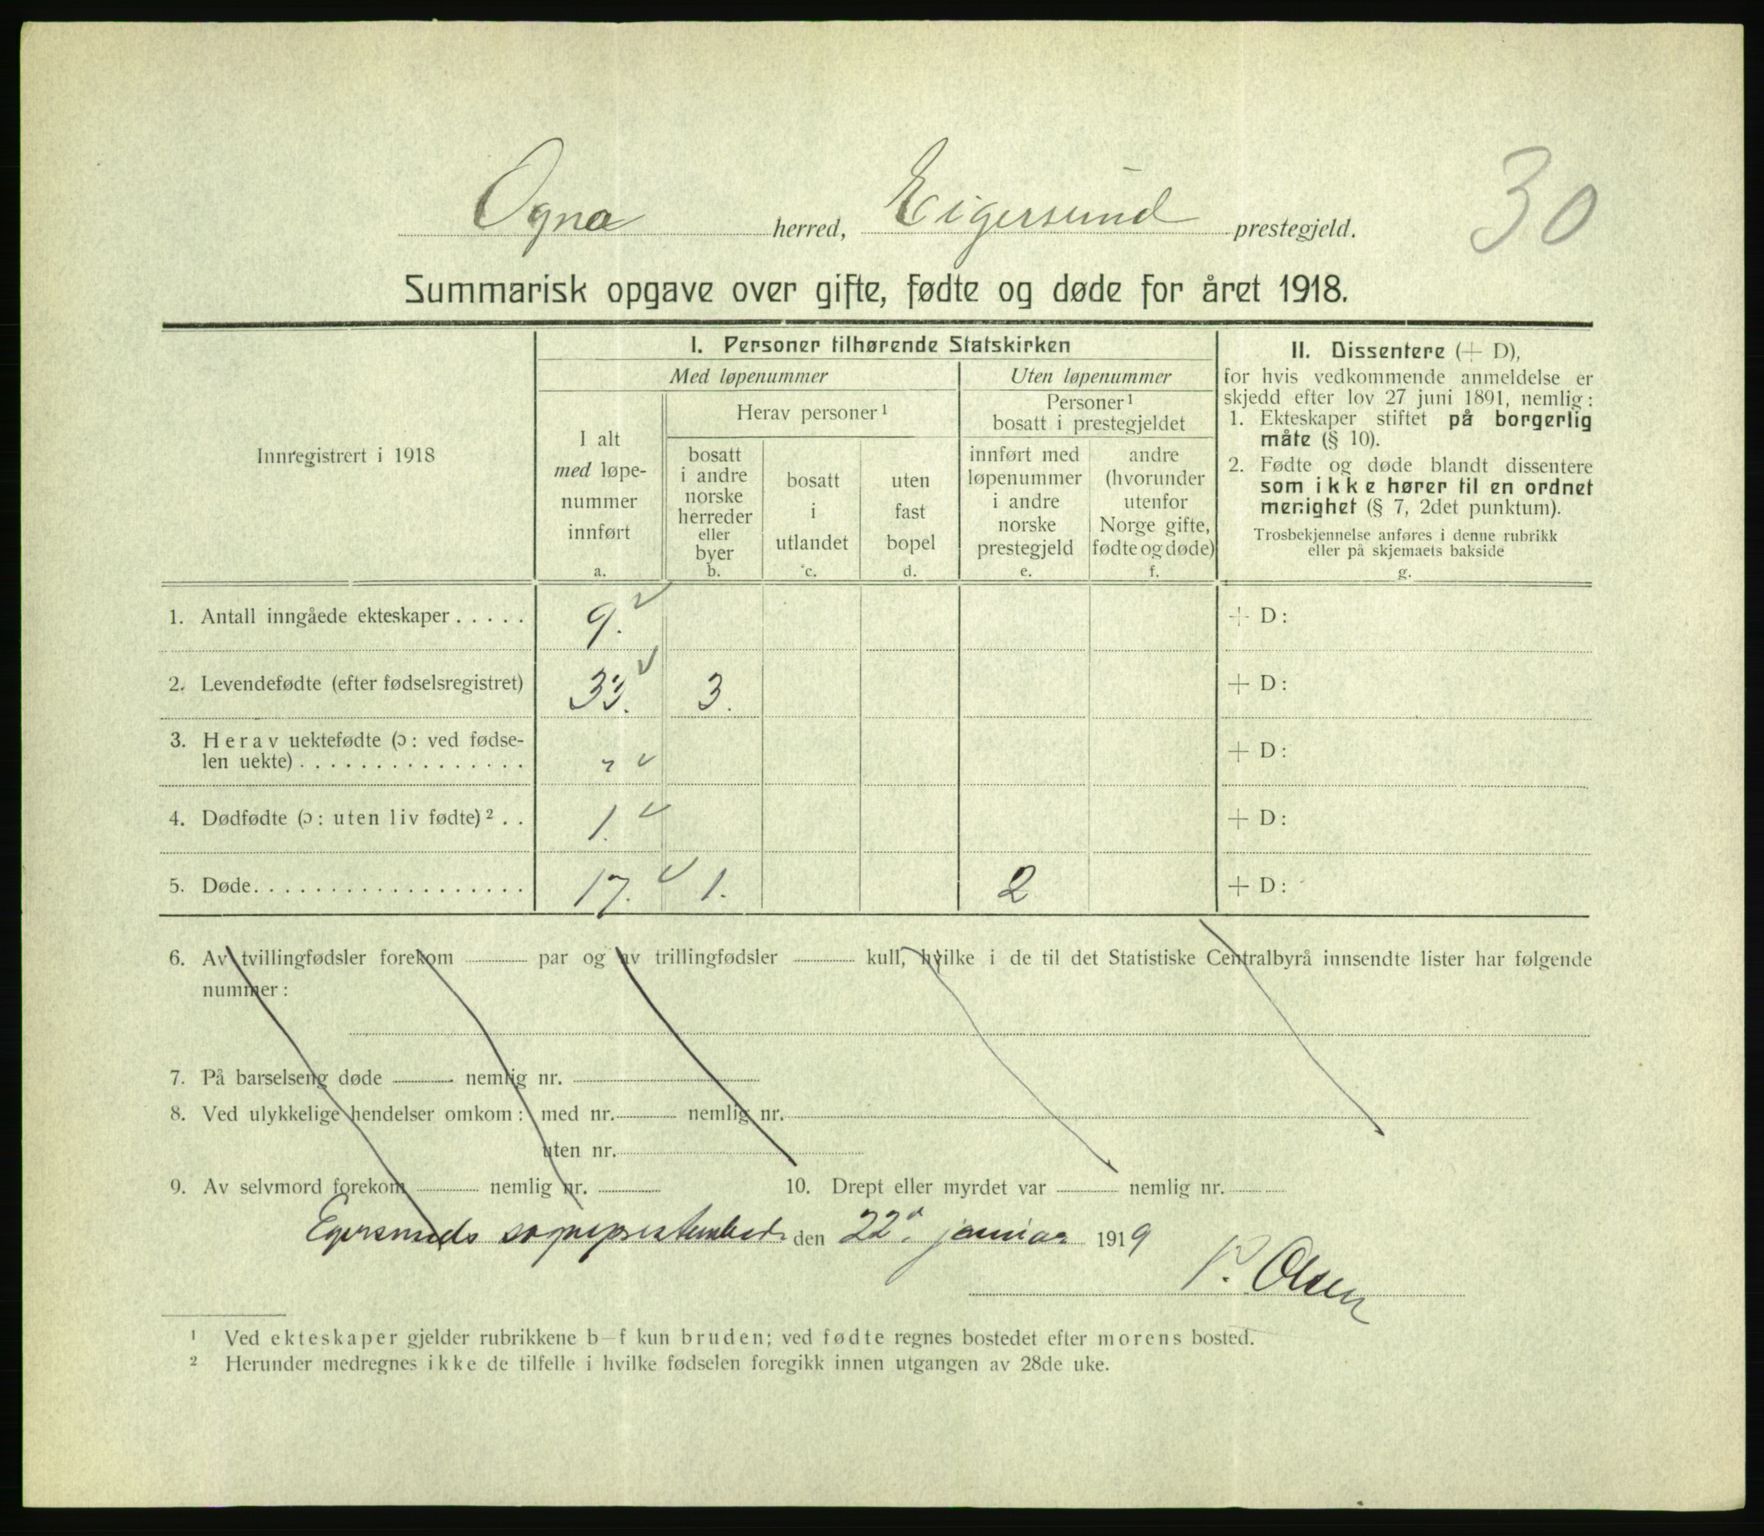 Ogna herred, Eigersund prestegjeld.
30
Summarisk opgave over gifte, fødte og døde for året 1918.
Innregistrert i 1918
I. Personer tilhørende Statskirken
Med løpenummer
Uten løpenummer
I alt
med løpe-
nummer
innført
a.
Herav personer ¹
bosatt
i andre
norske
herreder
eller
byer
b.
bosatt
i
utlandet
c.
uten
fast
bopel
d.
Personer ¹
bosatt i prestegjeldet
innført med
løpenummer
i andre
norske
prestegjeld
e.
andre
(hvorunder
utenfor
Norge gifte,
fødte og døde)
f.
II. Dissentere (+ D),
for hvis vedkommende anmeldelse er
skjedd efter lov 27 juni 1891, nemlig:
1. Ekteskaper stiftet på borgerlig
måte (§ 10).
2. Fødte og døde blandt dissentere
som ikke hører til en ordnet
menighet (§ 7, 2det punktum).
Trosbekjennelse anføres i denne rubrikk
eller på skjemaets bakside
g.
1. Antall inngåede ekteskaper..... 9. + D:
2. Levendefødte (efter fødselsregistret) 33. 3. + D:
3. Herav uektefødte (ɔ: ved fødse-
len uekte)............... + D:
4. Dødfødte (ɔ: uten liv fødte) ².. 1. + D:
5. Døde.................. 17. 1. 2 + D:
6. Av tvillingfødsler forekom par og av trillingfødsler kull, hvilke i de til det Statistiske Centralbyrå innsendte lister har følgende
nummer:
7. På barselseng døde nemlig nr.
8. Ved ulykkelige hendelser omkom: med nr. nemlig nr.
uten nr.
9. Av selvmord forekom nemlig nr. 10. Drept eller myrdet var nemlig nr.
Egersunds sogneprestembede den 22d. januar 1919
P. Olsen
¹ Ved ekteskaper gjelder rubrikkene b–f kun bruden; ved fødte regnes bostedet efter morens bosted.
² Herunder medregnes ikke de tilfelle i hvilke fødselen foregikk innen utgangen av 28de uke.